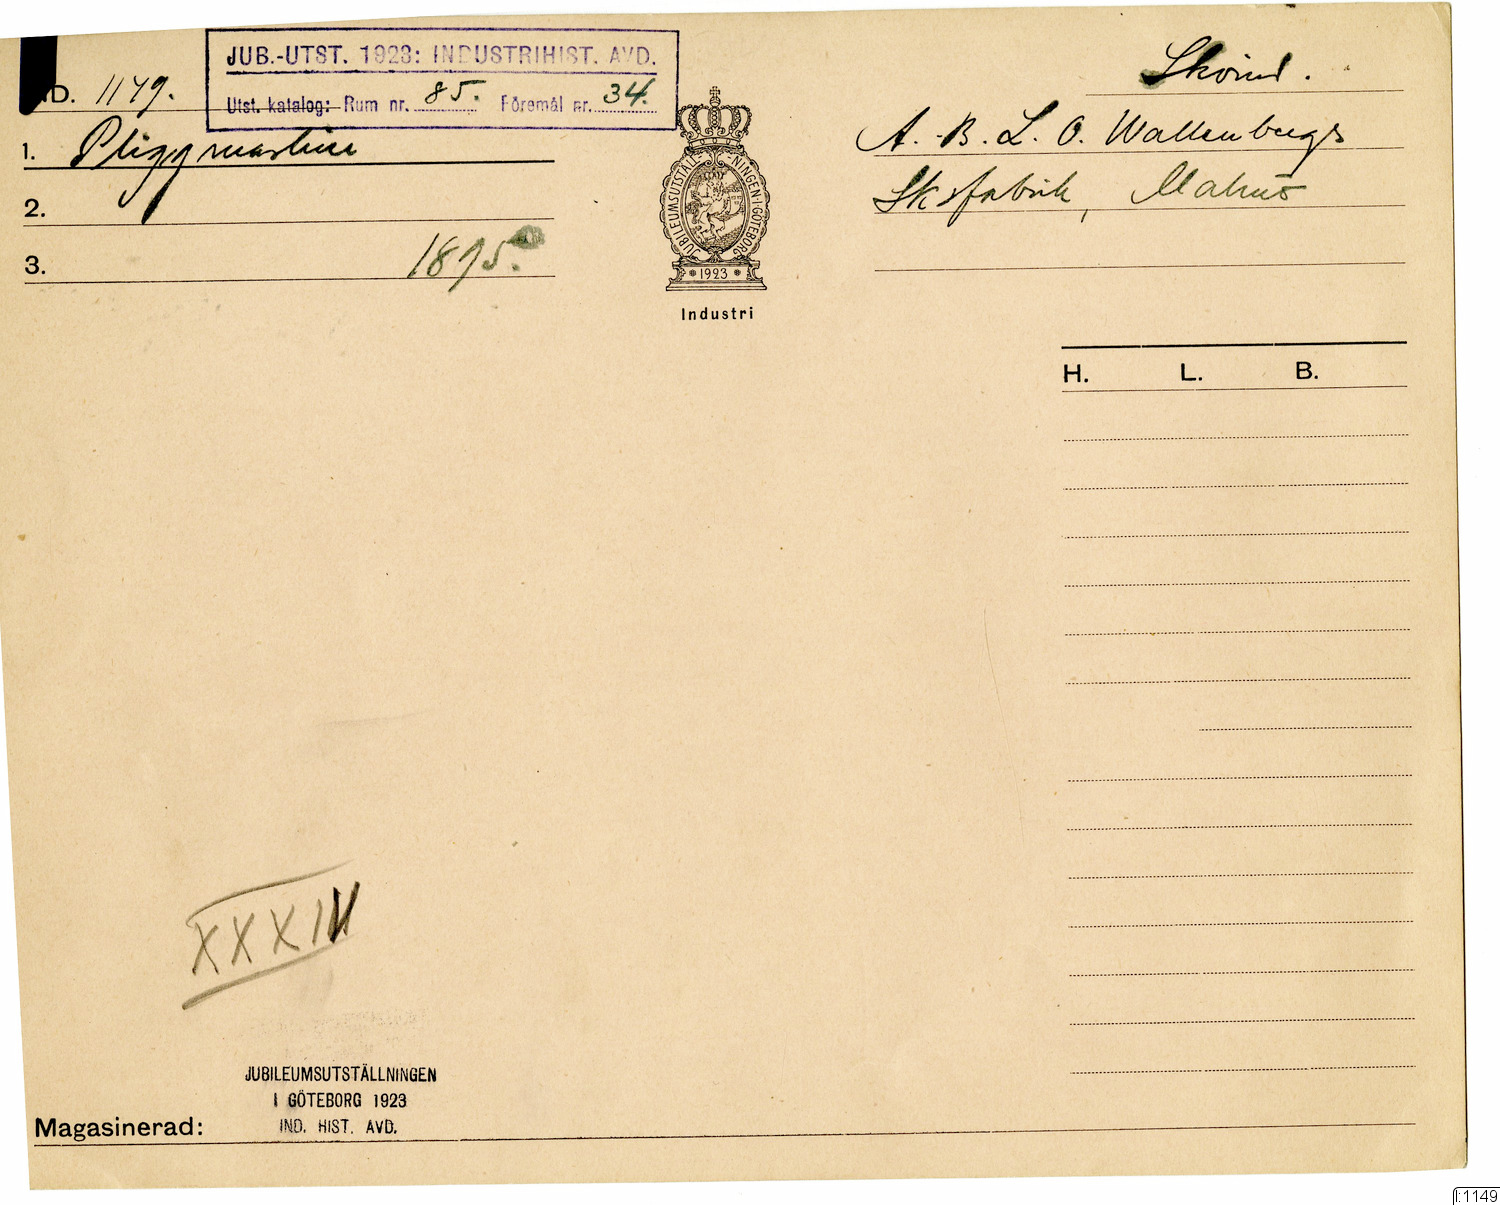 JUB.-UTST. 1923: INDUSTRIHIST. AVD.
Utst. katalog: Rum nr. 85. Föremål nr. 34.
ND. 1149.
1. Pliggmaskine
2.
3. 1895.
JUBILEUMSUTSTÄLL-NINGEN-I-GÖTEBORG
1923
Industri
Skoind.
A.-B. L. O. Wallenbergs
Skofabrik, Malmö
H. L. B.
XXXIV
JUBILEUMSUTSTÄLLNINGEN
I GÖTEBORG 1923
IND. HIST. AVD.
Magasinerad:
I:1149